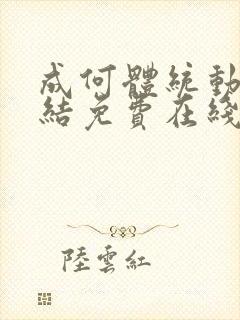 成何體統動
結免費在綫
陸雲紅